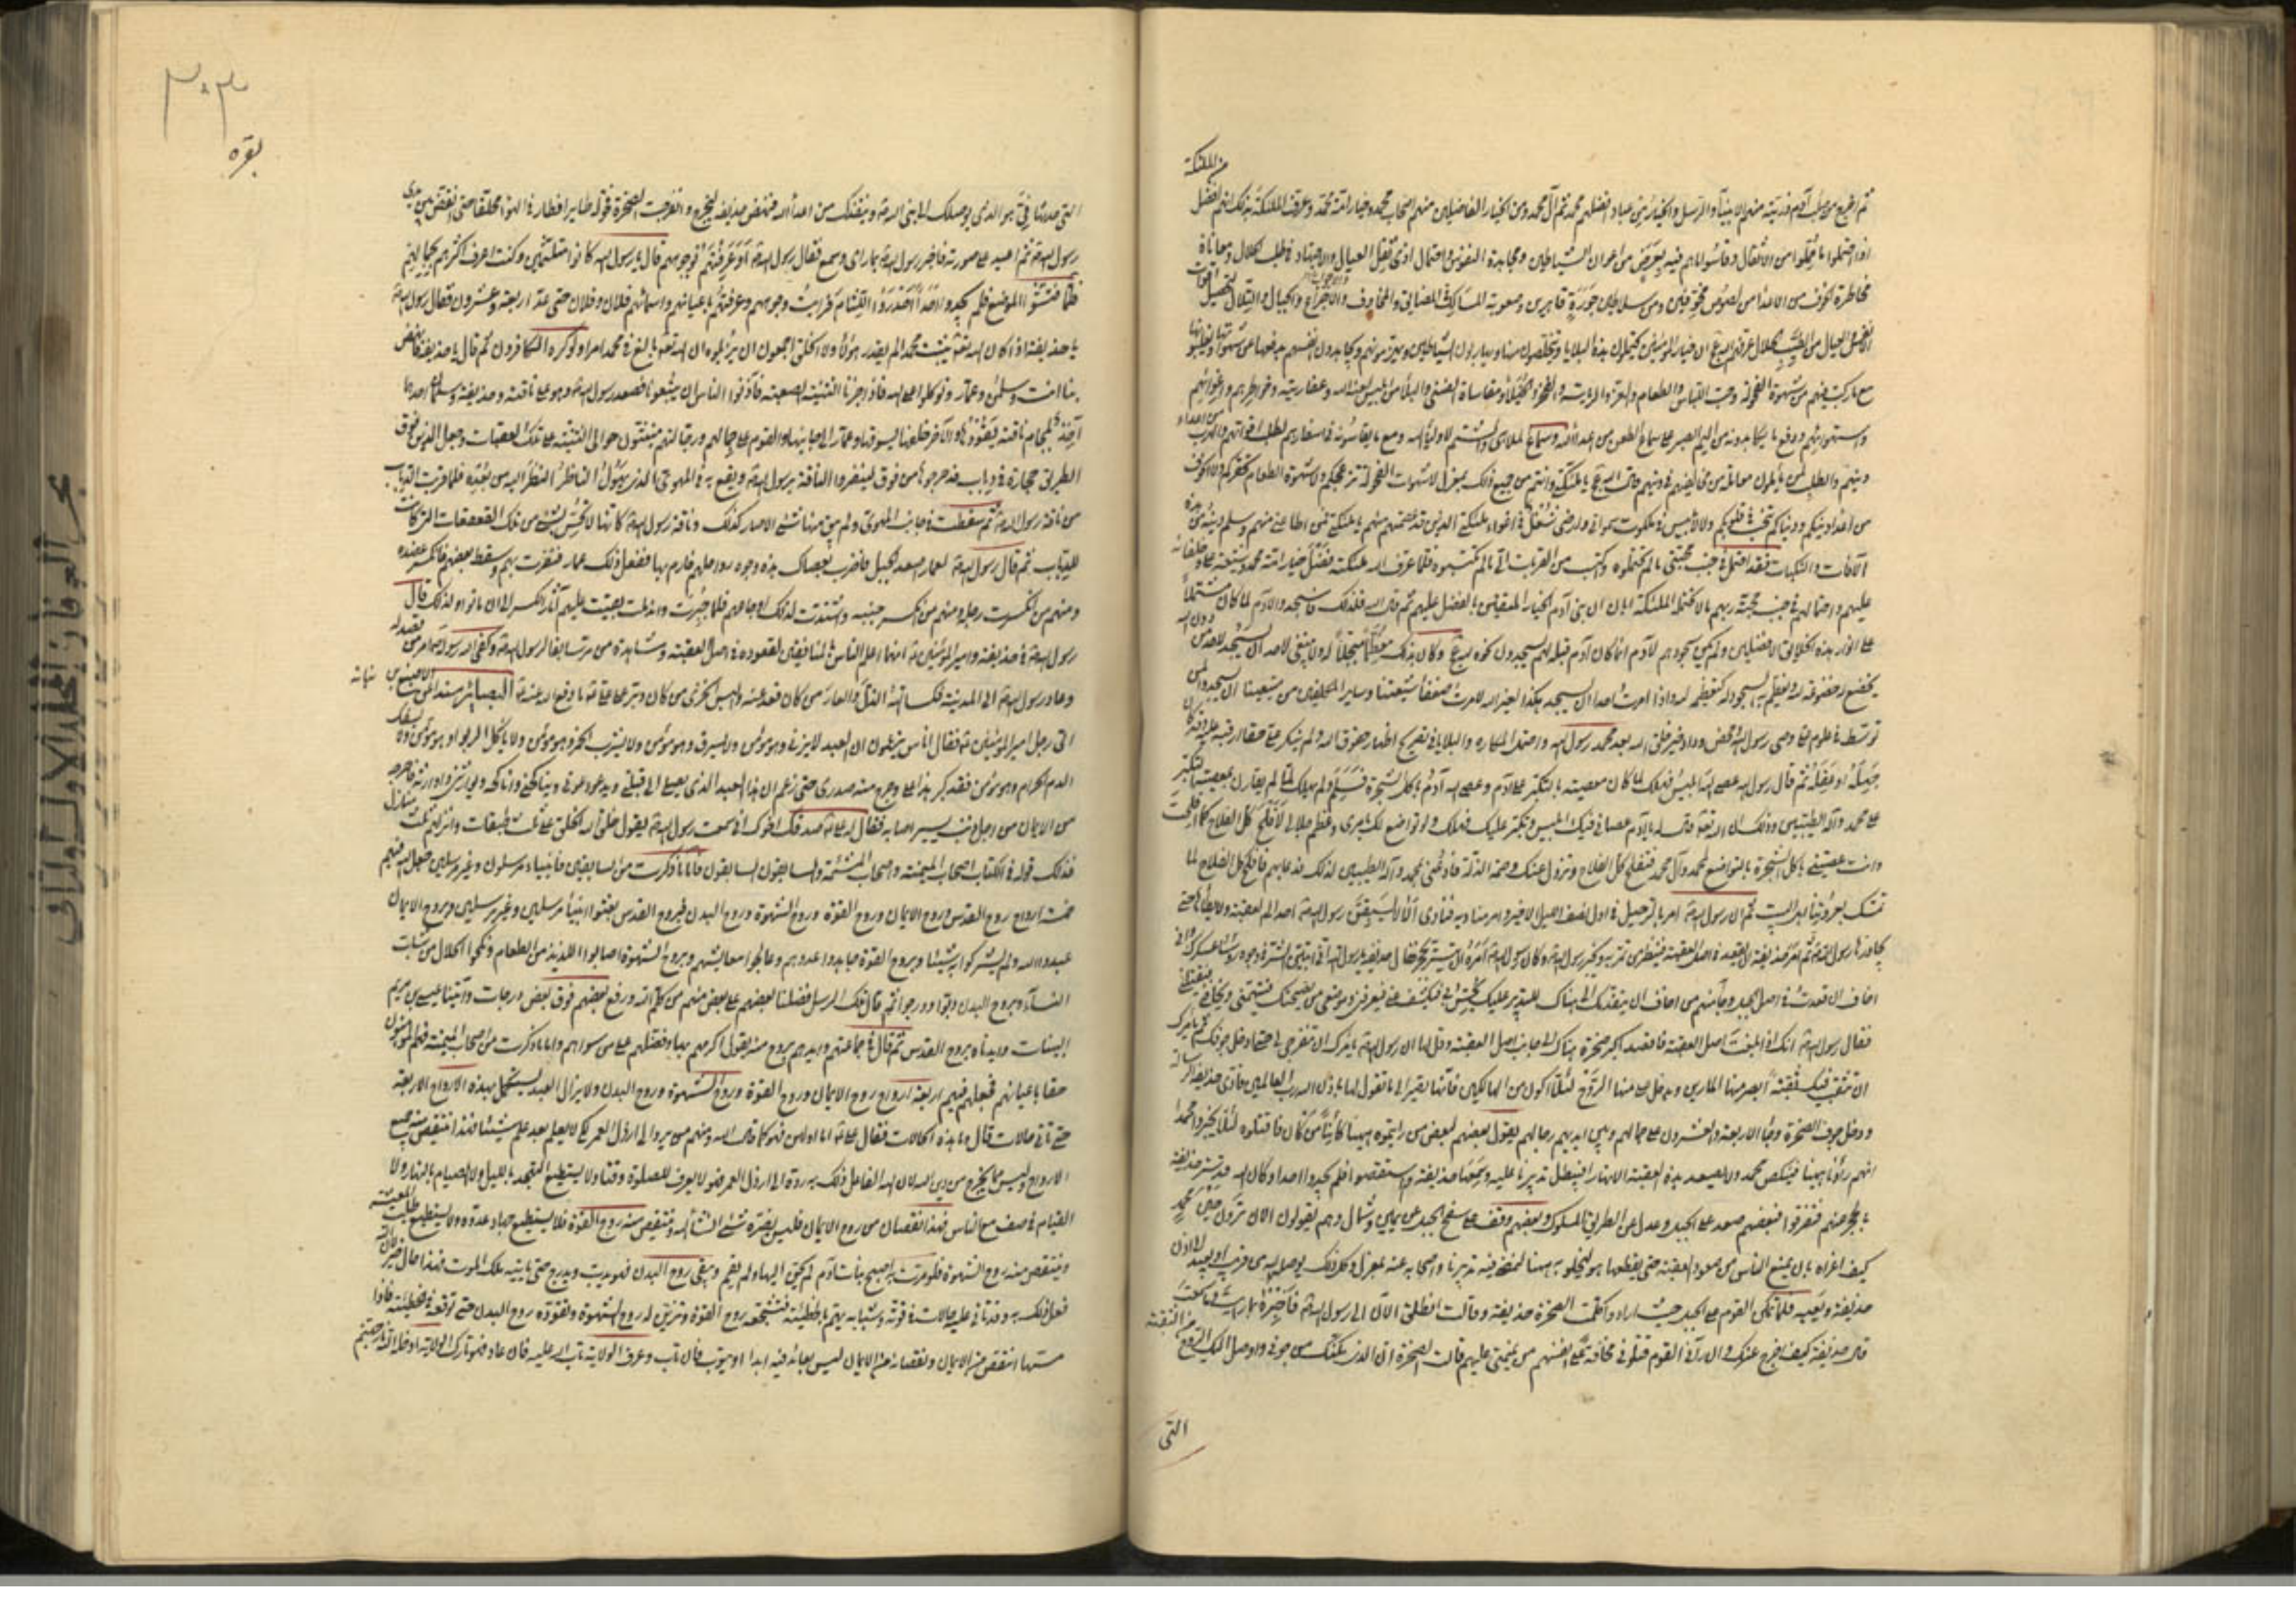 من الملئكة
ثم اخرج من صلب آدم ذريته منهم الانبيآء والرسل والخيار من عباد افضلهم محمد ثم آل محمد ومن الخيار الفاضلين منهم اصحاب محمد وخيار امة محمد وعرف الملئكة بذلك انهم افضل
اذا احتملوا ما حملوا من الاثقال وقاسوا ما هم فيه من اعوان الشياطين ومجاهدة النفوس واحتمال اذى ثقل العيال والاجتهاد في طلب الحلال ومعاناة
مخاطرة الخوف من الاعداء من لصوص مخوفين ومن سلاطين جورة قاهرين وصعوبة المسالك في المضايق والمخاوف والاجزاع والجبال والتلال لتحصيل اقوات
الانفس والعيال من الطيب الحلال عرفهم الله ان خيار المؤمنين يحتملون هذه البلايا ويتخلصون منها ويحاربون الشياطين ويهزمونهم ويجاهدون انفسهم بدفعها عن شهواتها ويغلبونها
مع ما ركب فيهم من شهوة الفحولة وحب اللباس والطعام والعز والرياسة والفخر والخيلاء ومقاساة العنا والبلاء من ابليس لعنه الله وعفاريته وخواطرهم واغوائهم
واستهوائهم ودفع ما يكابدونه من اليم الصبر على سماع الطعن من اعداء الله وسماع الملاهي والشتم لاولياء الله ومع ما يقاسونه في اسفارهم لطلب اقواتهم والهرب من اعداء
دينهم والطلب لمن يأملون معاملته من مخالفيهم في دينهم قال الله يا ملئكتي وانتم من جميع ذلك بمعزل لا شهوات الفحولة تزعجكم ولا شهوة الطعام تحفزكم ولا خوف
من اعداء دينكم ودنياكم تنخب في قلوبكم ولا لابليس في ملكوت سمواتي وارضي شغل في اغواء ملئكتي الذين قد عصمتهم منهم يا ملئكتي فمن اطاعني منهم وسلم دينه من هذه
الآفات والنكبات فقد احتمل في جنب محبتي ما لم تحتملوه واكتسب من القربات الي ما لم تكتسبوه فلما عرف الله ملئكته فضل خيار امة محمد وشيعة علي وخلفائه
عليهم واحتمالهم في جنب محبة ربهم ما لا تحتمله الملئكة ابان بني آدم الخيار المتقين بالفضل عليهم ثم قال الله فلذلك فاسجدوا لآدم لما كان مشتملا
على انوار هذه الخلائق الافضلين ولم يكن سجودهم لآدم انما كان آدم قبلة لهم يسجدون نحوه لله وكان بذلك معظما مبجلا له ولا ينبغي لاحد ان يسجد لاحد من دون الله
يخضع له خضوعه لله ويعظم بالسجود له كتعظيمه لله ولو امرت احدا ان يسجد هكذا لغير الله لامرت ضعفاء شيعتنا وساير المكلفين من شيعتنا ان يسجدوا لمن
توسط في علوم علي وصي رسول الله ومحض وداد خير خلق الله بعد محمد رسول الله واحتمل المكاره والبلايا في تصريح اظهار حقوق الله ولم ينكر علي حقا ارقبه عليه قد كان
جهله او غفله ثم قال رسول الله عصى الله ابليس فهلك لما كان معصيته بالتكبر على آدم وعصى الله آدم باكل الشجرة فسلم ولم يهلك لما لم يقارن بمعصيته التكبر
على محمد وآله الطيبين وذلك ان الله تعالى قال له يا آدم عصاني فيك ابليس وتكبر عليك فهلك ولو تواضع لك بامري وعظم عز جلالي لافلح كل الفلاح كما افلحت
وانت عصيتني باكل الشجرة وبالتواضع لمحمد وآل محمد تفلح كل الفلاح وتزول عنك وصمة الذلة فادعني بمحمد وآله الطيبين لذلك فدعا بهم فافلح كل الفلاح لما
تمسك بعروتنا اهل البيت ثم ان رسول الله امر بالرحيل في اول نصف الليل الاخير وامر مناديه فنادى الا لا يسبقن رسول الله احد الى العقبة ولا يطأها حتى
يجاوزها رسول الله ثم امر حذيفة ان يقعد في اصل العقبة فينظر من يمر به ويخبر رسول الله وكان رسول الله امره ان يستتر بحجر فقال حذيفة يا رسول الله اني اتبين الشر في وجوه رؤساء عسكرك واني
اخاف ان قعدت في اصل الجبل وجاء منهم من اخاف ان يتقدمك الى هناك للتدبير عليك يحس بي فيكشف عني فيعرفني وموضعي من نصيحتك فيتهمني ويخافني فيقتلني
فقال رسول الله انك اذا بلغت اصل العقبة فاقصد اكبر صخرة هناك الى جانب اصل العقبة وقل لها ان رسول الله يأمرك ان تنفرجي لي حتى ادخل جوفك ثم يأمرك
ان تنثقب فيك ثقبة ابصر منها المارين ويدخل علي منها الروح لئلا اكون من الهالكين فانها تصير الى ما تقول لها باذن الله رب العالمين فادى حذيفة الرسالة
ودخل جوف الصخرة وجاء الاربعة والعشرون على جمالهم وبين ايديهم رجالهم يقول بعضهم لبعض من رأيتموه ههنا كائنا من كان فاقتلوه لئلا يخبروا محمدا
انهم رأونا ههنا فينكص محمد ولا يصعد هذه العقبة الا نهارا فيبطل تدبيرنا عليه وسمعها حذيفة واستقصوا فلم يجدوا احدا وكان الله قد ستر حذيفة
بالحجر عنهم فتفرقوا فبعضهم صعد على الجبل وعدل عن الطريق المسلوك وبعضهم وقف على سفح الجبل عن يمين وشمال وهم يقولون الآن ترون حين محمد
كيف اغراه بان يمنع الناس من صعود العقبة حتى يقطعها هو لنخلو به ههنا لنمضي فيه تدبيرنا واصحابه عنه بمعزل وكل ذلك يوصله الله من قريب او بعيد الى اذن
حذيفة ويعيه فلما تمكن القوم على الجبل حيث ارادوا كلمت الصخرة حذيفة وقالت انطلق الآن الى رسول الله فاخبره بما رأيت وما سمعت
قال حذيفة كيف اخرج عنك وان رآني القوم قتلوني مخافة على انفسهم من نميمتي عليهم قالت الصخرة ان الذي مكنك من جوفي واوصل اليك الروح من الثقبة
التي
٣٠٣
بقره
التي احدثها في هو الذي يوصلك الى نبي الله وينقذك من اعداء الله فنهض حذيفة ليخرج وانفرجت الصخرة فحوله طايرا فطار في الهواء محلقا حتى انقض بين يدي
رسول الله ثم اعيد على صورته فاخبر رسول الله بما رأى وسمع فقال رسول الله اوعرفتهم بوجوههم قال يا رسول الله كانوا متلثمين وكنت اعرف اكثرهم بجمالهم
فلما فتشوا الموضع فلم يجدوا احدا احدروا اللثام فرأيت وجوههم وعرفتهم باعيانهم واسمائهم فلان وفلان حتى عد اربعة وعشرون فقال رسول الله
يا حذيفة اذا كان الله تعالى يثبت محمدا لم يقدر هؤلاء ولا الخلق اجمعون ان يزيلوه ان الله تعالى بالغ في محمد امره ولو كره الكافرون ثم قال يا حذيفة فانهض
بنا انت وسلمان وعمار وتوكلوا على الله فاذا جزنا الثنية الصعبة فأذنوا للناس ان يتبعونا فصعد رسول الله وهو على ناقته وحذيفة وسلمان احدهما
آخذ بخطام ناقته يقودها والآخر خلفها يسوقها وعمار الى جانبها والقوم على جمالهم ورجالتهم منبثون حوالي الثنية على تلك العقبات وجعل الذين فوق
الطريق حجارة في دباب فدحرجوها من فوق لينفروا الناقة برسول الله ويقع به في المهوى الذي يهول الناظر النظر اليه من بعده فلما قربت الدباب
من ناقة رسول الله ثم سقطت في جانب المهوى ولم يبق منها شئ الا صار كذلك وناقة رسول الله كانها لا تحس بشئ من تلك القعقعات التي كانت
للدباب ثم قال رسول الله لعمار اصعد الجبل فاضرب بعصاك هذه وجوه رواحلهم فارم بها ففعل ذلك عمار فنفرت بهم وسقط بعضهم فانكسر عضده
ومنهم من انكسرت رجله ومنهم من انكسر جنبه واشتدت لذلك اوجاعهم فلما جبرت واندملت بقيت عليهم آثار الكسر الى ان ماتوا ولذلك قال
رسول الله في حذيفة وامير المؤمنين انهما اعلم الناس بالمنافقين لقعوده في اصل العقبة ومشاهدة من مر سابقا لرسول الله وكفى الله رسوله امر من قصد له
وعاد رسول الله الى المدينة فكسا الله الذل والعار من كان قعد عنه والبس الخزي من كان دبر على علي ما دفع الله عنه البصاير مسندا عن الاصبغ بن نباتة
اتى رجل امير المؤمنين فقال اناس يزعمون ان العبد لا يزني وهو مؤمن ولا يسرق وهو مؤمن ولا يشرب الخمر وهو مؤمن ولا يأكل الربوا وهو مؤمن ولا يسفك
الدم الحرام وهو مؤمن فقد كبر هذا علي وحرج منه صدري حتى زعم ان هذا العبد الذي يصلي الى قبلتي ويدعو دعوتي ويناكحني واناكحه ويوارثني واوارثه فاخرجه
من الايمان من اجل ذنب يسير اصابه فقال له علي صدقك اخوك اني سمعت رسول الله يقول خلق الله الخلق على ثلث طبقات وانزلهم ثلث منازل
فذلك قوله في الكتاب اصحاب الميمنة واصحاب المشئمة والسابقون السابقون فاما ما ذكرت من السابقين فانبياء مرسلون وغير مرسلين جعل الله فيهم
خمسة ارواح روح القدس وروح الايمان وروح القوة وروح الشهوة وروح البدن فبروح القدس بعثوا انبيآء مرسلين وغير مرسلين وبروح الايمان
عبدوا الله ولم يشركوا به شيئا وبروح القوة جاهدوا عدوهم وعالجوا معايشهم وبروح الشهوة اصابوا اللذيذ من الطعام ونكحوا الحلال من شباب
النسآء وبروح البدن دبوا ودرجوا ثم قال تلك الرسل فضلنا بعضهم على بعض منهم من كلم الله ورفع بعضهم فوق بعض درجات وآتينا عيسى بن مريم
البينات وايدناه بروح القدس ثم قال في جماعتهم وايدهم بروح منه يقول اكرمهم بها وفضلهم على من سواهم واما ما ذكرت من اصحاب الميمنة فهم المؤمنون
حقا باعيانهم فجعلهم فيهم اربعة ارواح روح الايمان وروح القوة وروح الشهوة وروح البدن ولا يزال العبد يستكمل بهذه الارواح الاربعة
حتى تأتي حالات قال وما هذه الحالات فقال علي اما اولهن فهو كما قال الله ومنهم من يرد الى ارذل العمر لكي لا يعلم بعد علم شيئا فهذا انتقص منه جميع
الارواح وليس بالذي يخرج من دين الله لان الله الفاعل ذلك به رده الى ارذل العمر فهو لا يعرف للصلوة وقتا ولا يستطيع التهجد بالليل ولا الصيام بالنهار ولا
القيام في صف مع الناس فهذا نقصان من روح الايمان فليس يضره شئ انشاء الله وينتقص منه روح القوة فلا يستطيع جهاد عدوه ولا يستطيع طلب المعيشة
وينتقص منه روح الشهوة فلو مرت به اصبح بنات آدم لم يحن اليها ولم يقم ويبقى روح البدن فهو يدب ويدرج حتى يأتيه ملك الموت فهذا حال خير لان الله
فعل ذلك به وقد تأتي عليه حالات في قوته وشبابه يهم بالخطيئة فتشجعه روح القوة وتزين له روح الشهوة وتقوده روح البدن حتى توقعه في الخطيئة فاذا
مسها انتقص من الايمان ونقصانه من الايمان ليس بعائد فيه ابدا او يتوب فان تاب وعرف الولاية تاب الله عليه فان عاد وهو تارك الولاية ادخله الله نار جهنم